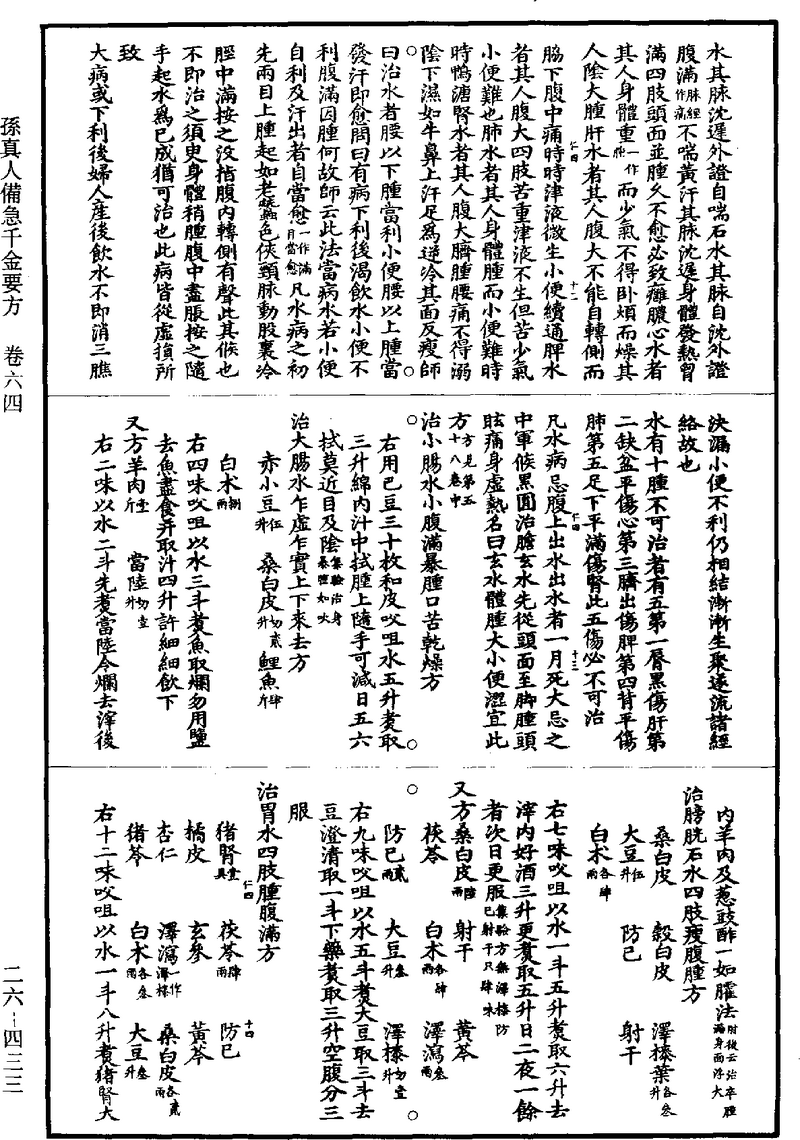 水其脉沈遲外證自喘石水其脉自沈外證
腹滿脉經作痛不喘黃汗其脉沈遲身體發熱胷
滿四肢頭面並腫久不愈必致癰膿心水者
其人身體重一作腫而少氣不得卧煩而燥其
人陰大腫肝水者其人腹大不能自轉側而
脇下腹中痛時時津液微生小便續通脾水
者其人腹大四肢苦重津液不生但苦少氣
小便難也肺水者其人身體腫而小便難時
時鴨溏腎水者其人腹大臍腫腰痛不得溺
陰下濕如牛鼻上汗足爲逆冷其面反瘦師
曰治水者腰以下腫當利小便腰以上腫當
發汗即愈問曰有病下利後渴飲水小便不
利腹滿因腫何故師云此法當病水若小便
自利及汗出者自當愈一作滿月當愈凡水病之初
先兩目上腫起如老蠶色俠頸脉動股裏冷
脛中滿按之没指腹内轉側有聲此其候也
不即治之須臾身體稍腫腹中盡脹按之隨
手起水爲已成猶可治也此病皆從虚損所
致
大病或下利後婦人産後飲水不即消三膲
決漏小便不利仍相結漸漸生聚遂流諸經
絡故也
水有十腫不可治者有五第一唇黑傷肝第
二缺盆平傷心第三臍出傷脾第四背平傷
肺第五足下平滿傷腎此五傷必不可治
凡水病忌腹上出水出水者一月死大忌之
中軍候黑圓治膽玄水先從頭面至脚腫頭
眩痛身虚熱名曰玄水體腫大小便澀宜此
方方見第五十八卷中
治小腸水小腹滿暴腫口苦乾燥方
右用巴豆三十枚和皮㕮咀水五升煑取
三升綿内汁中拭腫上隨手可減日五六
拭莫近目及陰集驗治身暴腫如吹
治大腸水乍虚乍實上下來去方
赤小豆伍升 桑白皮切貳升 鯉魚肆斤
白术捌兩
右四味㕮咀以水三斗煑魚取爛勿用鹽
去魚盡食并取汁四升許細細飲下
又方羊肉壹斤 當陸切壹升
右二味以水二斗先煑當陸令爛去滓後
内羊肉及葱豉酢一如臛法肘後云治卒腫滿身面浮大
治膀胱石水四肢瘦腹腫方
桑白皮 穀白皮 澤㯶葉各叁升
大豆伍升 防己 射干
白术各肆兩
右七味㕮咀以水一斗五升煑取六升去
滓内好酒三升更煑取五升日二夜一餘
者次日更服集驗方無澤㯶防己射干只肆味
又方桑白皮陸兩 射干 黃芩
茯苓 白术各肆兩 澤瀉叁兩
防己貳兩 大豆叁升 澤㯶切壹升
右九味㕮咀以水五斗煑大豆取三斗去
豆澄清取一斗下藥煑取三升空腹分三
服
治胃水四肢腫腹滿方
猪腎壹具 茯苓肆兩 防己
橘皮 玄參 黃芩
杏仁 澤瀉一作澤㯶 桑白皮各貳兩
猪苓 白术各叁兩 大豆叁升
右十二味㕮咀以水一斗八升煑猪腎大
孫真人備急千金要方 卷六四
二六—四三三